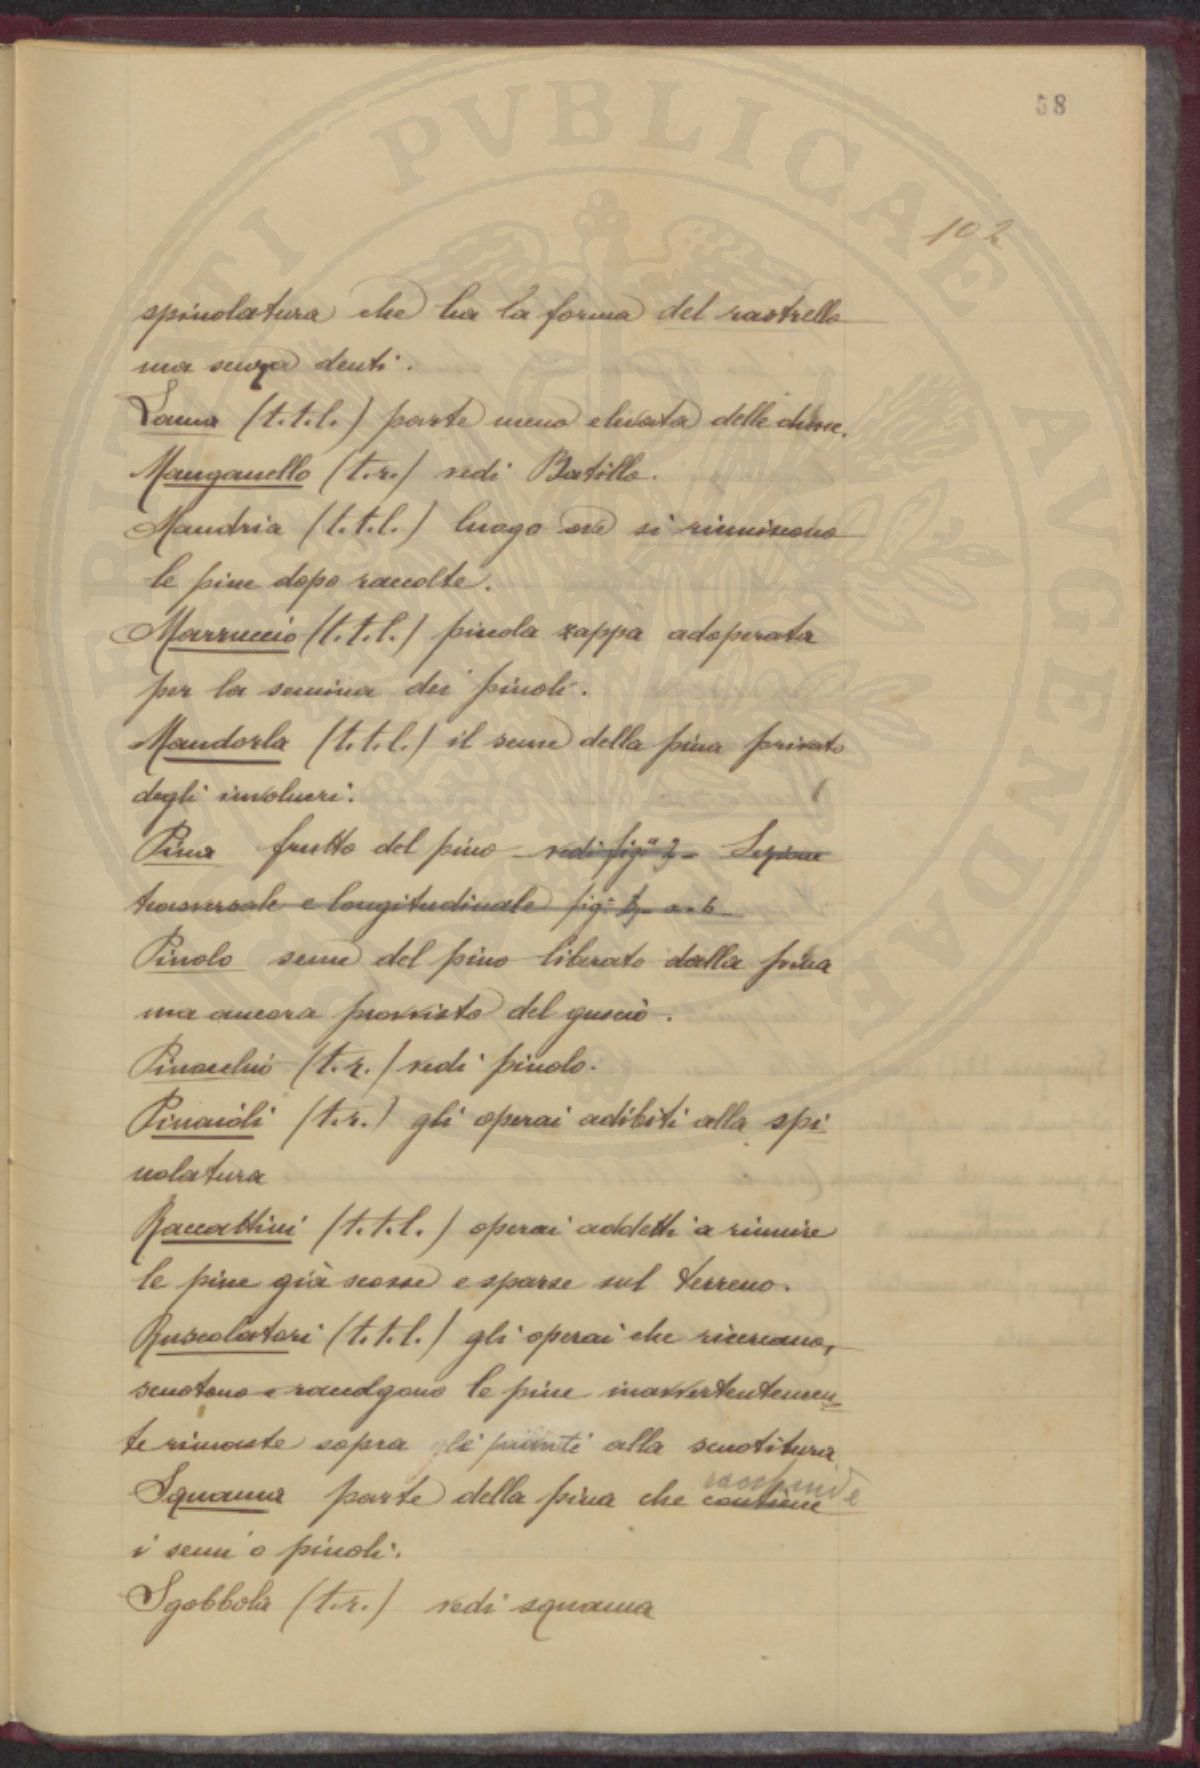 58
102
spinolatura che ha la forma del rastrello
ma senza denti.
Lama (t.t.l.) parte meno elevata delle dune.
Manganello (t.r.) vedi Batillo.
Mandria (t.t.l.) luogo ove si riuniscono
le pine dopo raccolte.
Marruccio (t.t.l.) piccola zappa adoperata
per la semina dei pinoli.
Mandorla (t.t.l.) il seme della pina privato
degli involucri.
Pina frutto del pino vedi fig.ª Sezione
trasversale e longitudinale fig. a-b
Pinolo seme del pino liberato dalla pina
ma ancora provvisto del guscio.
Pinocchio (t.r.) vedi pinolo.
Pinaioli (t.r.) gli operai adibiti alla spi
nolatura
Raccattini (t.t.l.) operai addetti a riunire
le pine già scosse e sparse sul terreno.
Ruscolatori (t.t.l.) gli operai che ricercano,
scuotono e raccolgono le pine inavvertentemen
te rimaste sopra gli pianti alla scuotitura
Squama parte della pina che contiene racchiude
i semi o pinoli.
Sgobbola (t.r.) vedi squama
PVBLICAE AVGENDAE